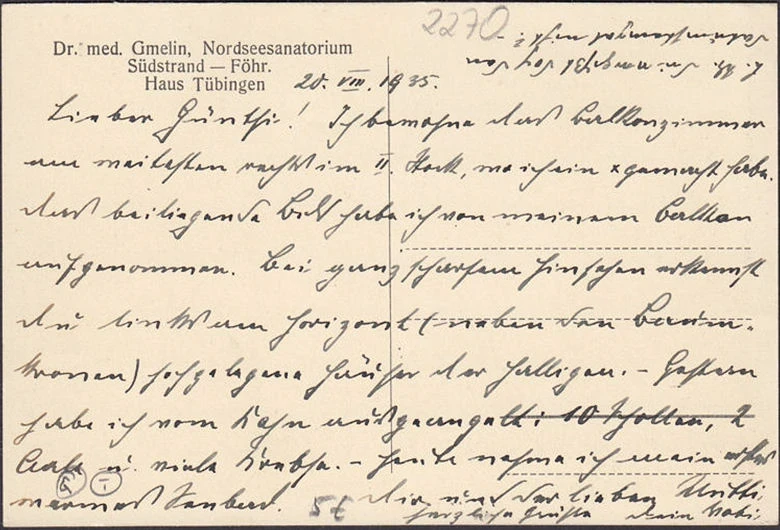 Dr. med. Gmelin, Nordseesanatorium
Südstrand — Föhr.
Haus Tübingen
2270
20. VIII. 1935.
Lieber Günthi! Ich bewohne das Balkonzimmer
am weitesten rechts im II. Stock, wo ich ein x gemacht habe.
das beiliegende Bild habe ich von meinem Balkon
aufgenommen. Bei ganz scharfem Hinsehen erkennst
du links am Horizont (neben den Baum-
kronen) hochgelegene Häuser der Halligen. - Gestern
habe ich vom Kahn aus geangelt: 10 Schollen, 2
Aale u. viele Krebse. - Heute nehme ich mein erstes
warmes Seebad. Dir und der lieben Mutti
herzliche Grüße dein Vati